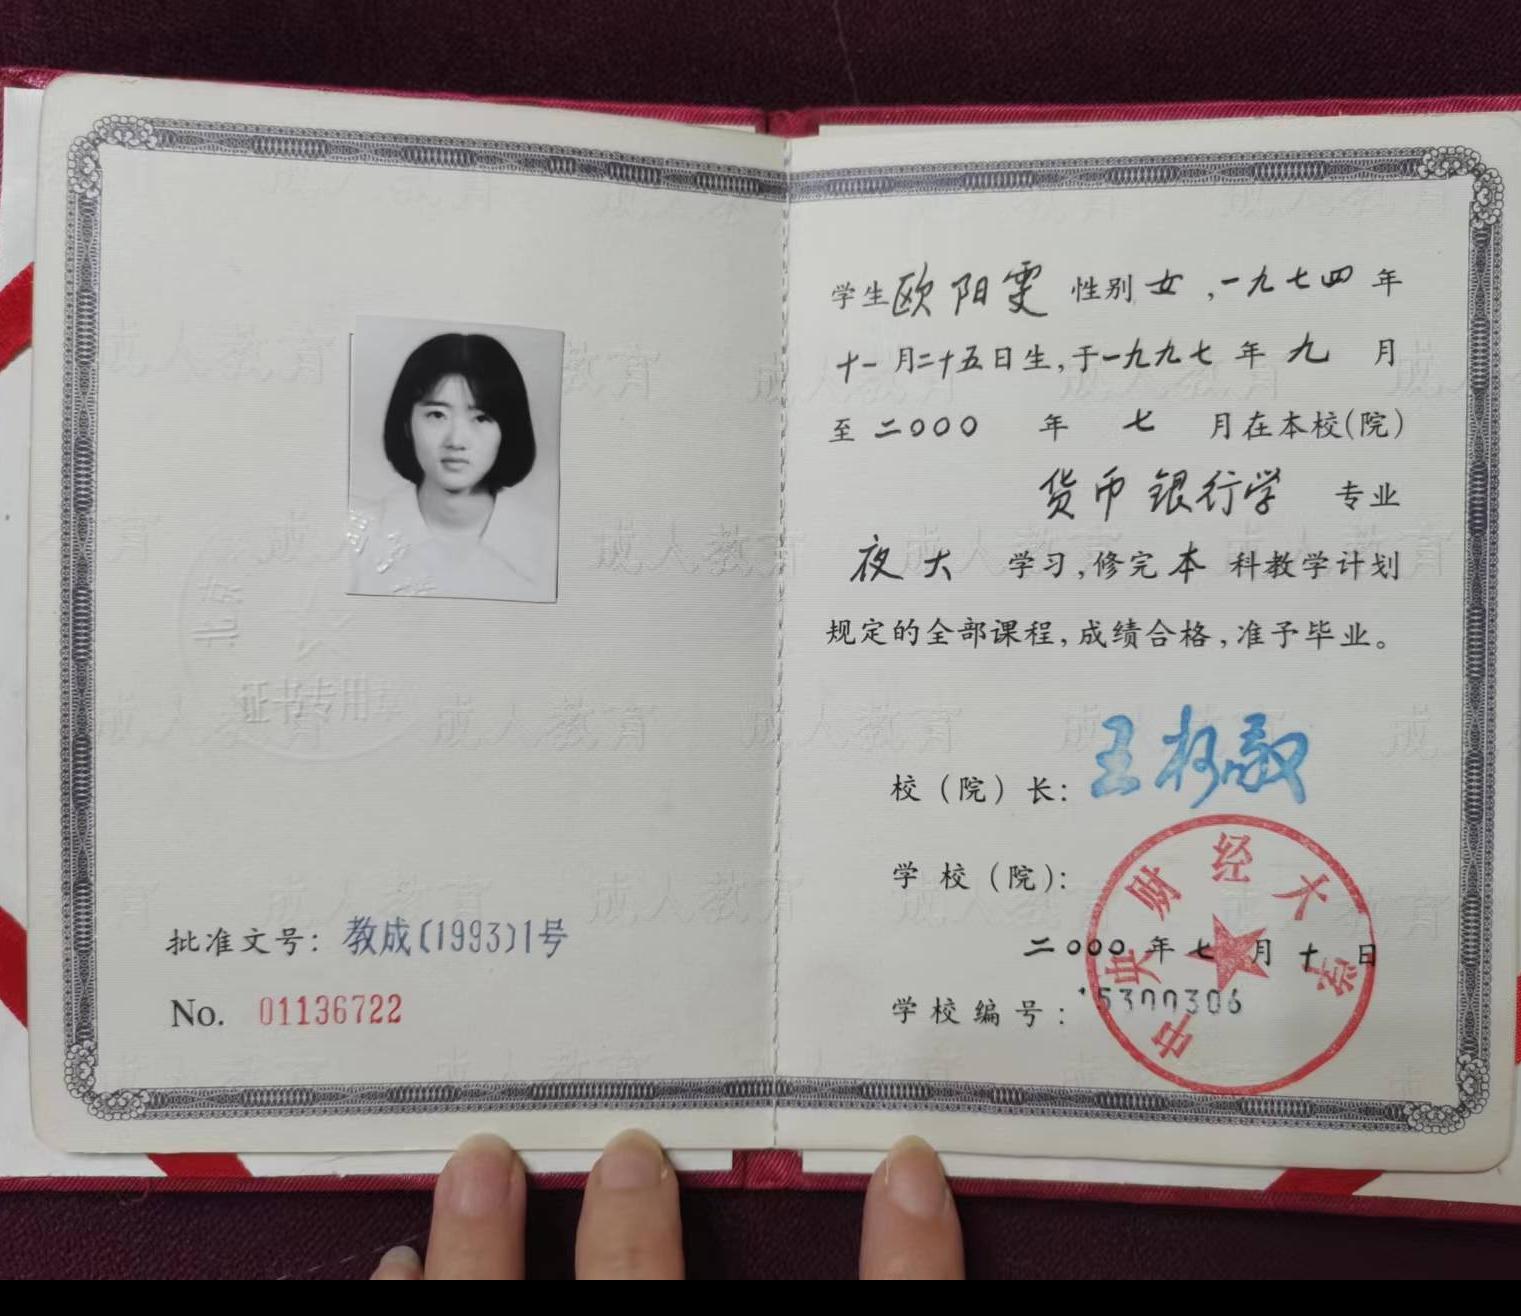 批准文号：教成(1993)1号
No. 01136722
证书专用章
学生欧阳雯 性别女，一九七四年
十一月二十五日生，于一九九七年九月
至二〇〇〇年七月在本校(院)
货币银行学 专业
夜大 学习，修完本科教学计划
规定的全部课程，成绩合格，准予毕业。
校（院）长：王柯敬
学校（院）：
中央财经大学
二〇〇〇年七月十日
学校编号：15300306
成人教育